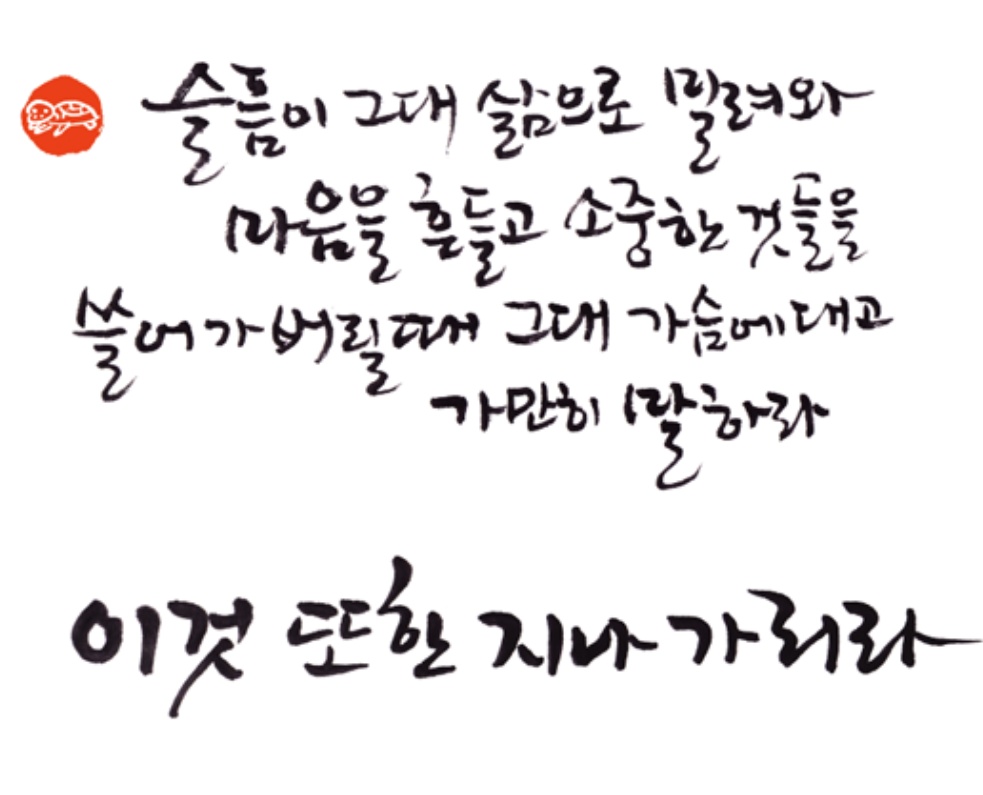 슬픔이 그대 삶으로 밀려와
마음을 흔들고 소중한 것들을
쓸어가 버릴때 그대 가슴에대고
가만히 말하라
이것 또한 지나가리라